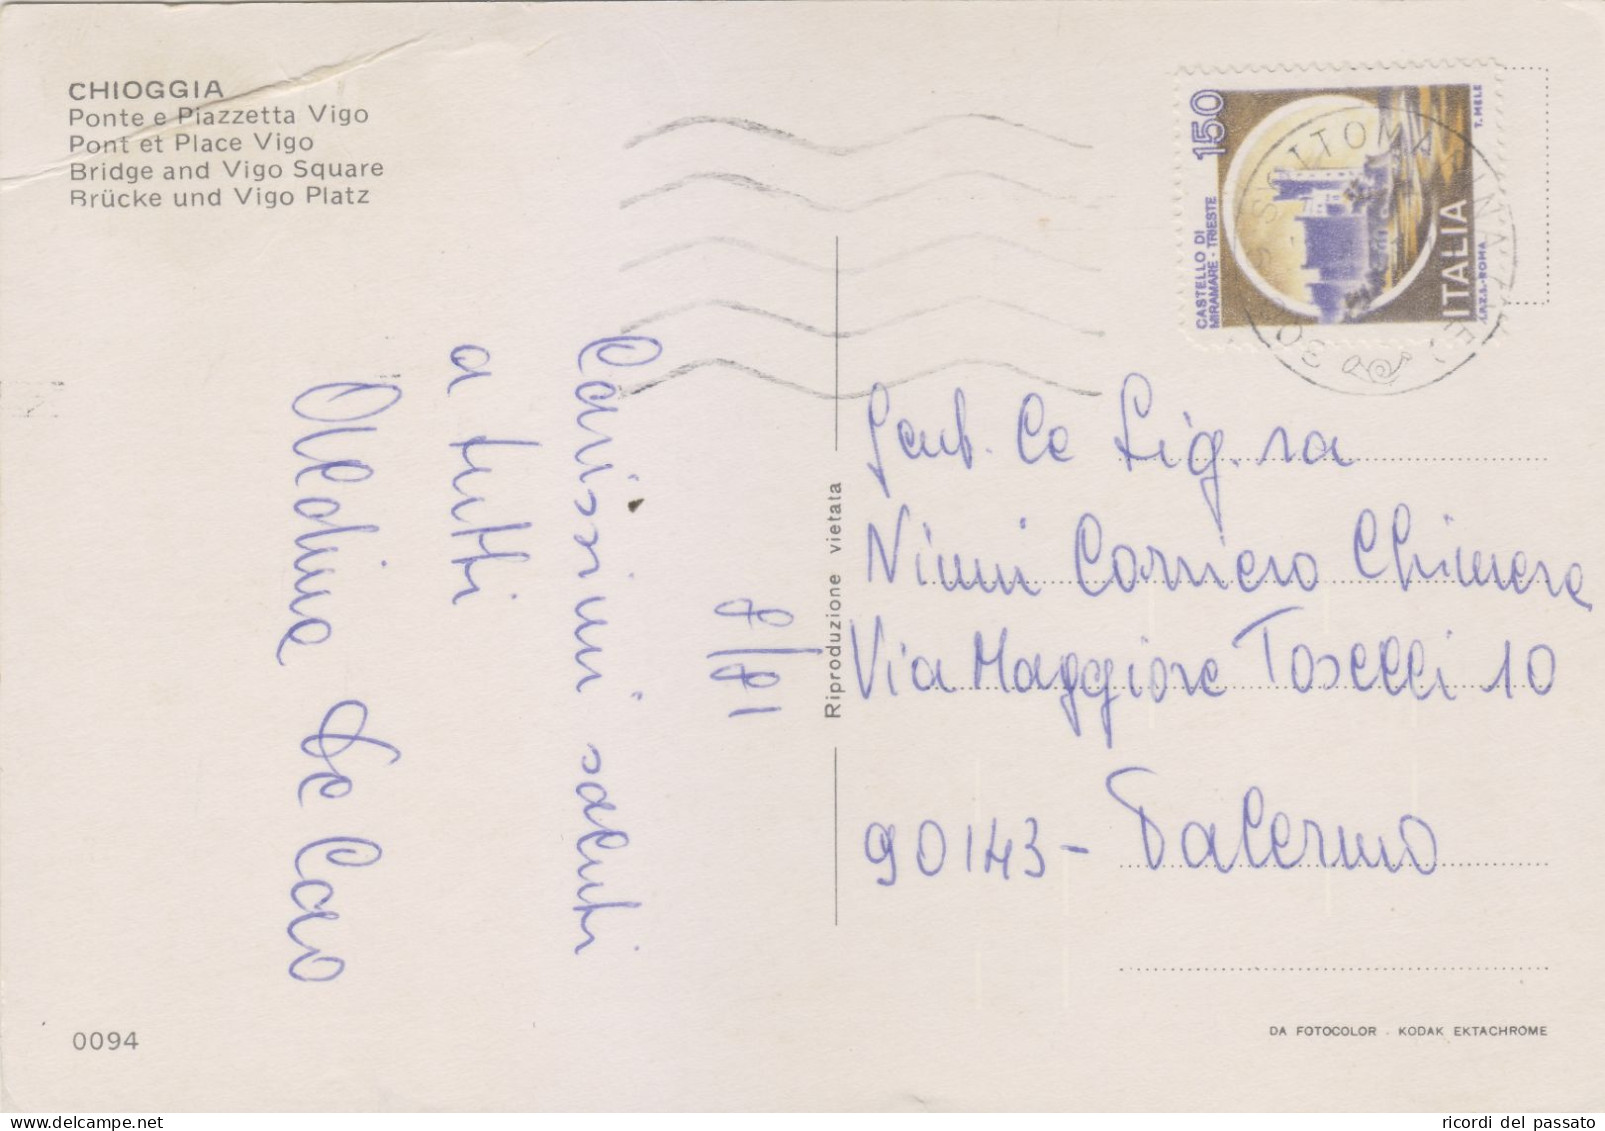 CHIOGGIA
Ponte e Piazzetta Vigo
Pont et Place Vigo
Bridge and Vigo Square
Brücke und Vigo Platz
150
CASTELLO DI
MIRAMARE - TRIESTE
ITALIA
I.P.Z.S.-ROMA
T. MELE
8/81
Carissimi saluti
a tutti
Aldina Lo Cao
Riproduzione vietata
Gent. le Sig.ra
Ninni Corriero Chimera
Via Maggiore Toselli 10
90143 - Palermo
0094
DA FOTOCOLOR - KODAK EKTACHROME
ricordi del passato